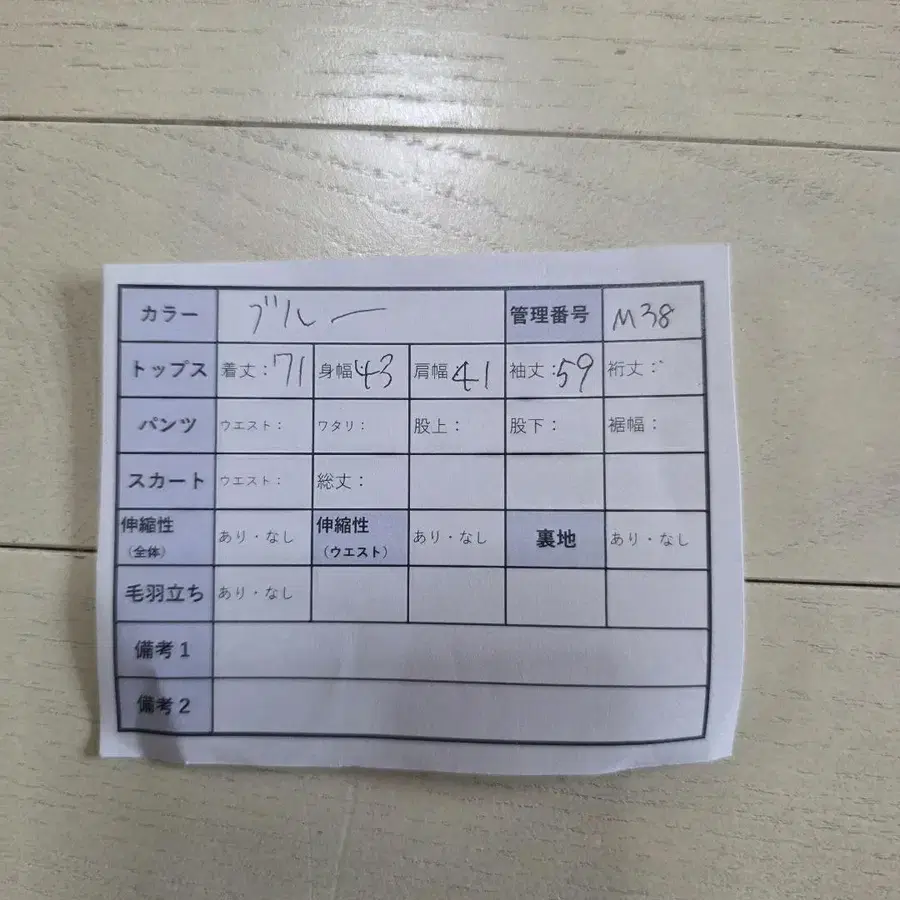 カラー ブルー 管理番号 M38
トップス 着丈:71 身幅43 肩幅41 袖丈:59 裄丈:
パンツ ウエスト: ワタリ: 股上: 股下: 裾幅:
スカート ウエスト: 総丈:
伸縮性(全体) あり・なし 伸縮性(ウエスト) あり・なし 裏地 あり・なし
毛羽立ち あり・なし
備考1
備考2